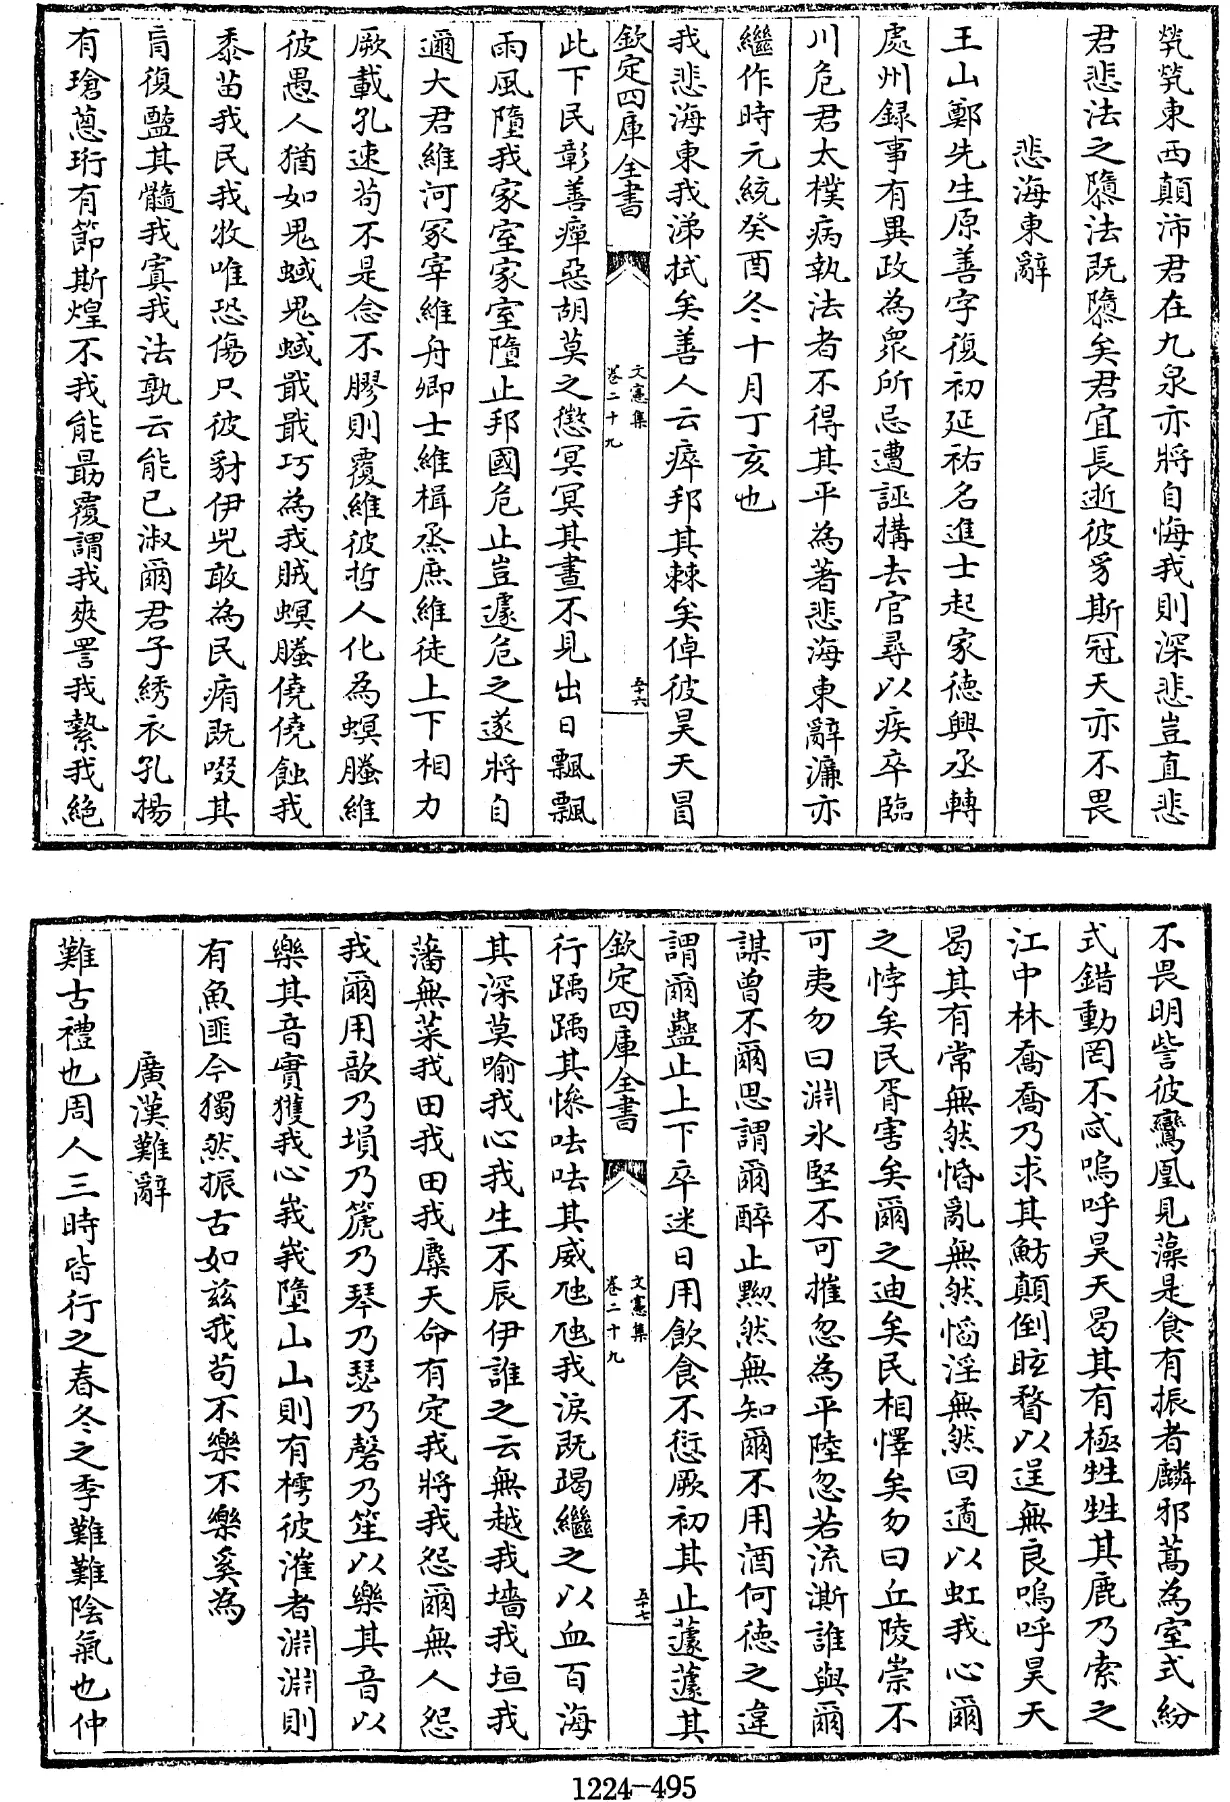 煢煢東西顛沛君在九泉亦將自悔我則深悲豈直悲
君悲法之隳法既隳矣君宜長逝彼豸斯冠天亦不畏
悲海東辭
王山鄭先生原善字復初延祐名進士起家德興丞轉
處州録事有異政為衆所忌遭誣搆去官尋以疾卒臨
川危君太樸病執法者不得其平為著悲海東辭濂亦
繼作時元統癸酉冬十月丁亥也
我悲海東我涕拭矣善人云瘁邦其棘矣倬彼昊天冒
欽定四庫全書
文憲集
卷二十九
五十六
此下民彰善癉惡胡莫之懲冥冥其晝不見出日飄飄
雨風墮我家室家室墮止邦國危止豈遽危之遂將自
邇大君維河冢宰維舟卿士維楫烝庶維徒上下相力
厥載孔速苟不是念不膠則覆維彼哲人化為螟螣維
彼愚人猶如鬼蜮鬼蜮戢戢巧為我賊螟螣僥僥蝕我
黍苗我民我牧唯恐傷只彼豺伊兕敢為民痏既啜其
肓復盬其髓我寘我法孰云能已淑爾君子綉衣孔楊
有瑲蔥珩有節斯煌不我能勗覆謂我爽詈我縶我絶
不畏明訾彼鸞凰見藻是食有振者麟邪蒿為室式紛
式錯動罔不忒嗚呼昊天曷其有極甡甡其鹿乃索之
江中林喬喬乃求其魴顛倒眩瞀以逞無良嗚呼昊天
曷其有常無然惛亂無然慆淫無然回遹以虹我心爾
之悖矣民胥害矣爾之迪矣民相懌矣勿曰丘陵崇不
可夷勿曰淵氷堅不可摧忽為平陸忽若流澌誰與爾
謀曾不爾思謂爾醉止黙然無知爾不用酒何徳之違
謂爾蠱止上下卒迷日用飲食不愆厥初其止蘧蘧其
欽定四庫全書
文憲集
卷二十九
五十七
行踽踽其慘呿呿其威虺虺我涙既竭繼之以血百海
其深莫喻我心我生不辰伊誰之云無越我墻我垣我
藩無菜我田我田我麇天命有定我將我怨爾無人怨
我爾用歆乃塤乃篪乃琴乃瑟乃磬乃笙以樂其音以
樂其音實獲我心峩峩墮山山則有樗彼漼者淵淵則
有魚匪今獨然振古如兹我苟不樂不樂奚為
廣漢難辭
難古禮也周人三時皆行之春冬之季難難陰氣也仲
1224-495